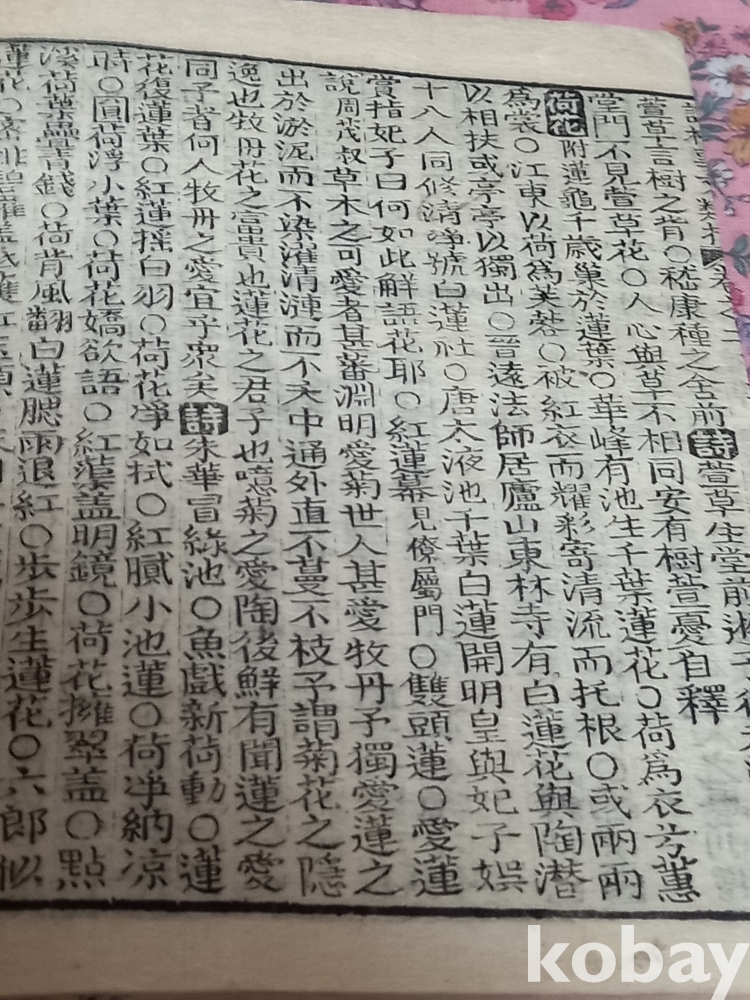 萱草言樹之背○嵇康種之舍前詩萱草生堂前
堂門不見萱草花○人心與草不相同安有樹萱憂自釋
荷花附蓮龜千歲巢於蓮葉○華峰有池生千葉蓮花○荷爲衣芳蕙
爲裳○江東以荷爲芙蓉○被紅衣而耀彩寄清流而托根○或兩兩
以相扶或亭亭以獨出○晉遠法師居廬山東林寺有白蓮花與陶潛
十八人同修清淨號白蓮社○唐太液池千葉白蓮開明皇與妃子娛
賞指妃子曰何如此解語花耶○紅蓮幕見僚屬門○雙頭蓮○愛蓮
說周茂叔草木之可愛者甚蕃淵明愛菊世人甚愛牧丹予獨愛蓮之
出於淤泥而不染濯清漣而不夭中通外直不蔓不枝予謂菊花之隱
逸也牧丹花之富貴也蓮花之君子也噫菊之愛陶後鮮有聞蓮之愛
同予者何人牧丹之愛宜乎衆矣詩朱華冒綠池○魚戲新荷動○蓮
花復蓮葉○紅蓮搖白羽○荷花淨如拭○紅膩小池蓮○荷淨納凉
時○圓荷浮小葉○荷花嬌欲語○紅蕖盖明鏡○荷花擁翠盖○點
溪荷葉疊靑錢○荷背風翻白蓮腮雨退紅○步步生蓮花○六郎似
蓮花
kobay